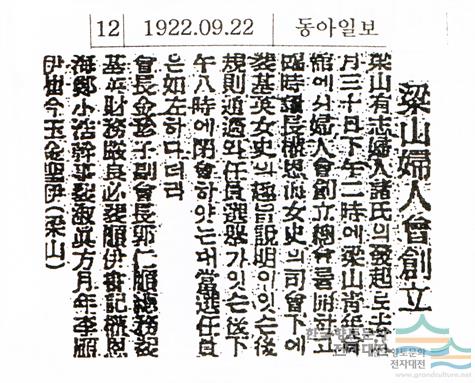 12 1922.09.22 동아일보
梁山婦人會創立
梁山有志婦人諸氏의發起로去
月三十日下午二時에梁山靑年會
館에서婦人會創立總會를開하고
臨時議長權恩海女史의司會下에
裴基英女史의趣旨說明이잇슨後
規則通過와任員選擧가잇슨後下
午八時에閉會하얏는대當選任員
은如左하다더라
會長金珍子副會長郭仁順總務裴
基英財務嚴良必裴順伊書記權恩
海鄭小幹事裴淑眞方月年李順
伊崔今玉金聖伊(梁山)
향토문화
전자대전
www.grandculture.net